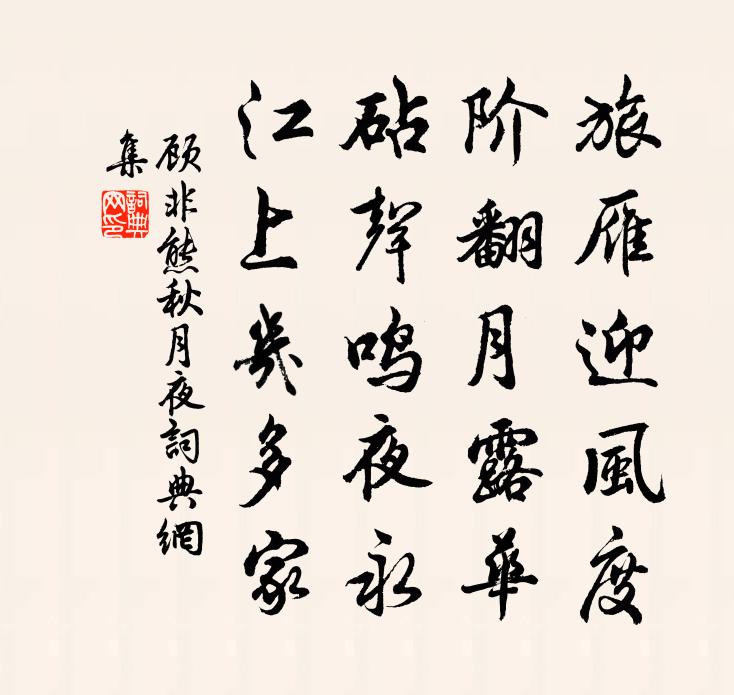 旅雁迎風度
阶翻月露華
砧聲鳴夜永
江上幾多家
顾非熊秋月夜詞典網
集
詞典
网印